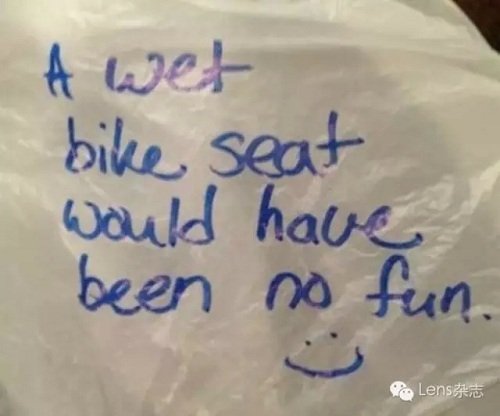 A wet
bike seat
would have
been no fun.
Lens杂志